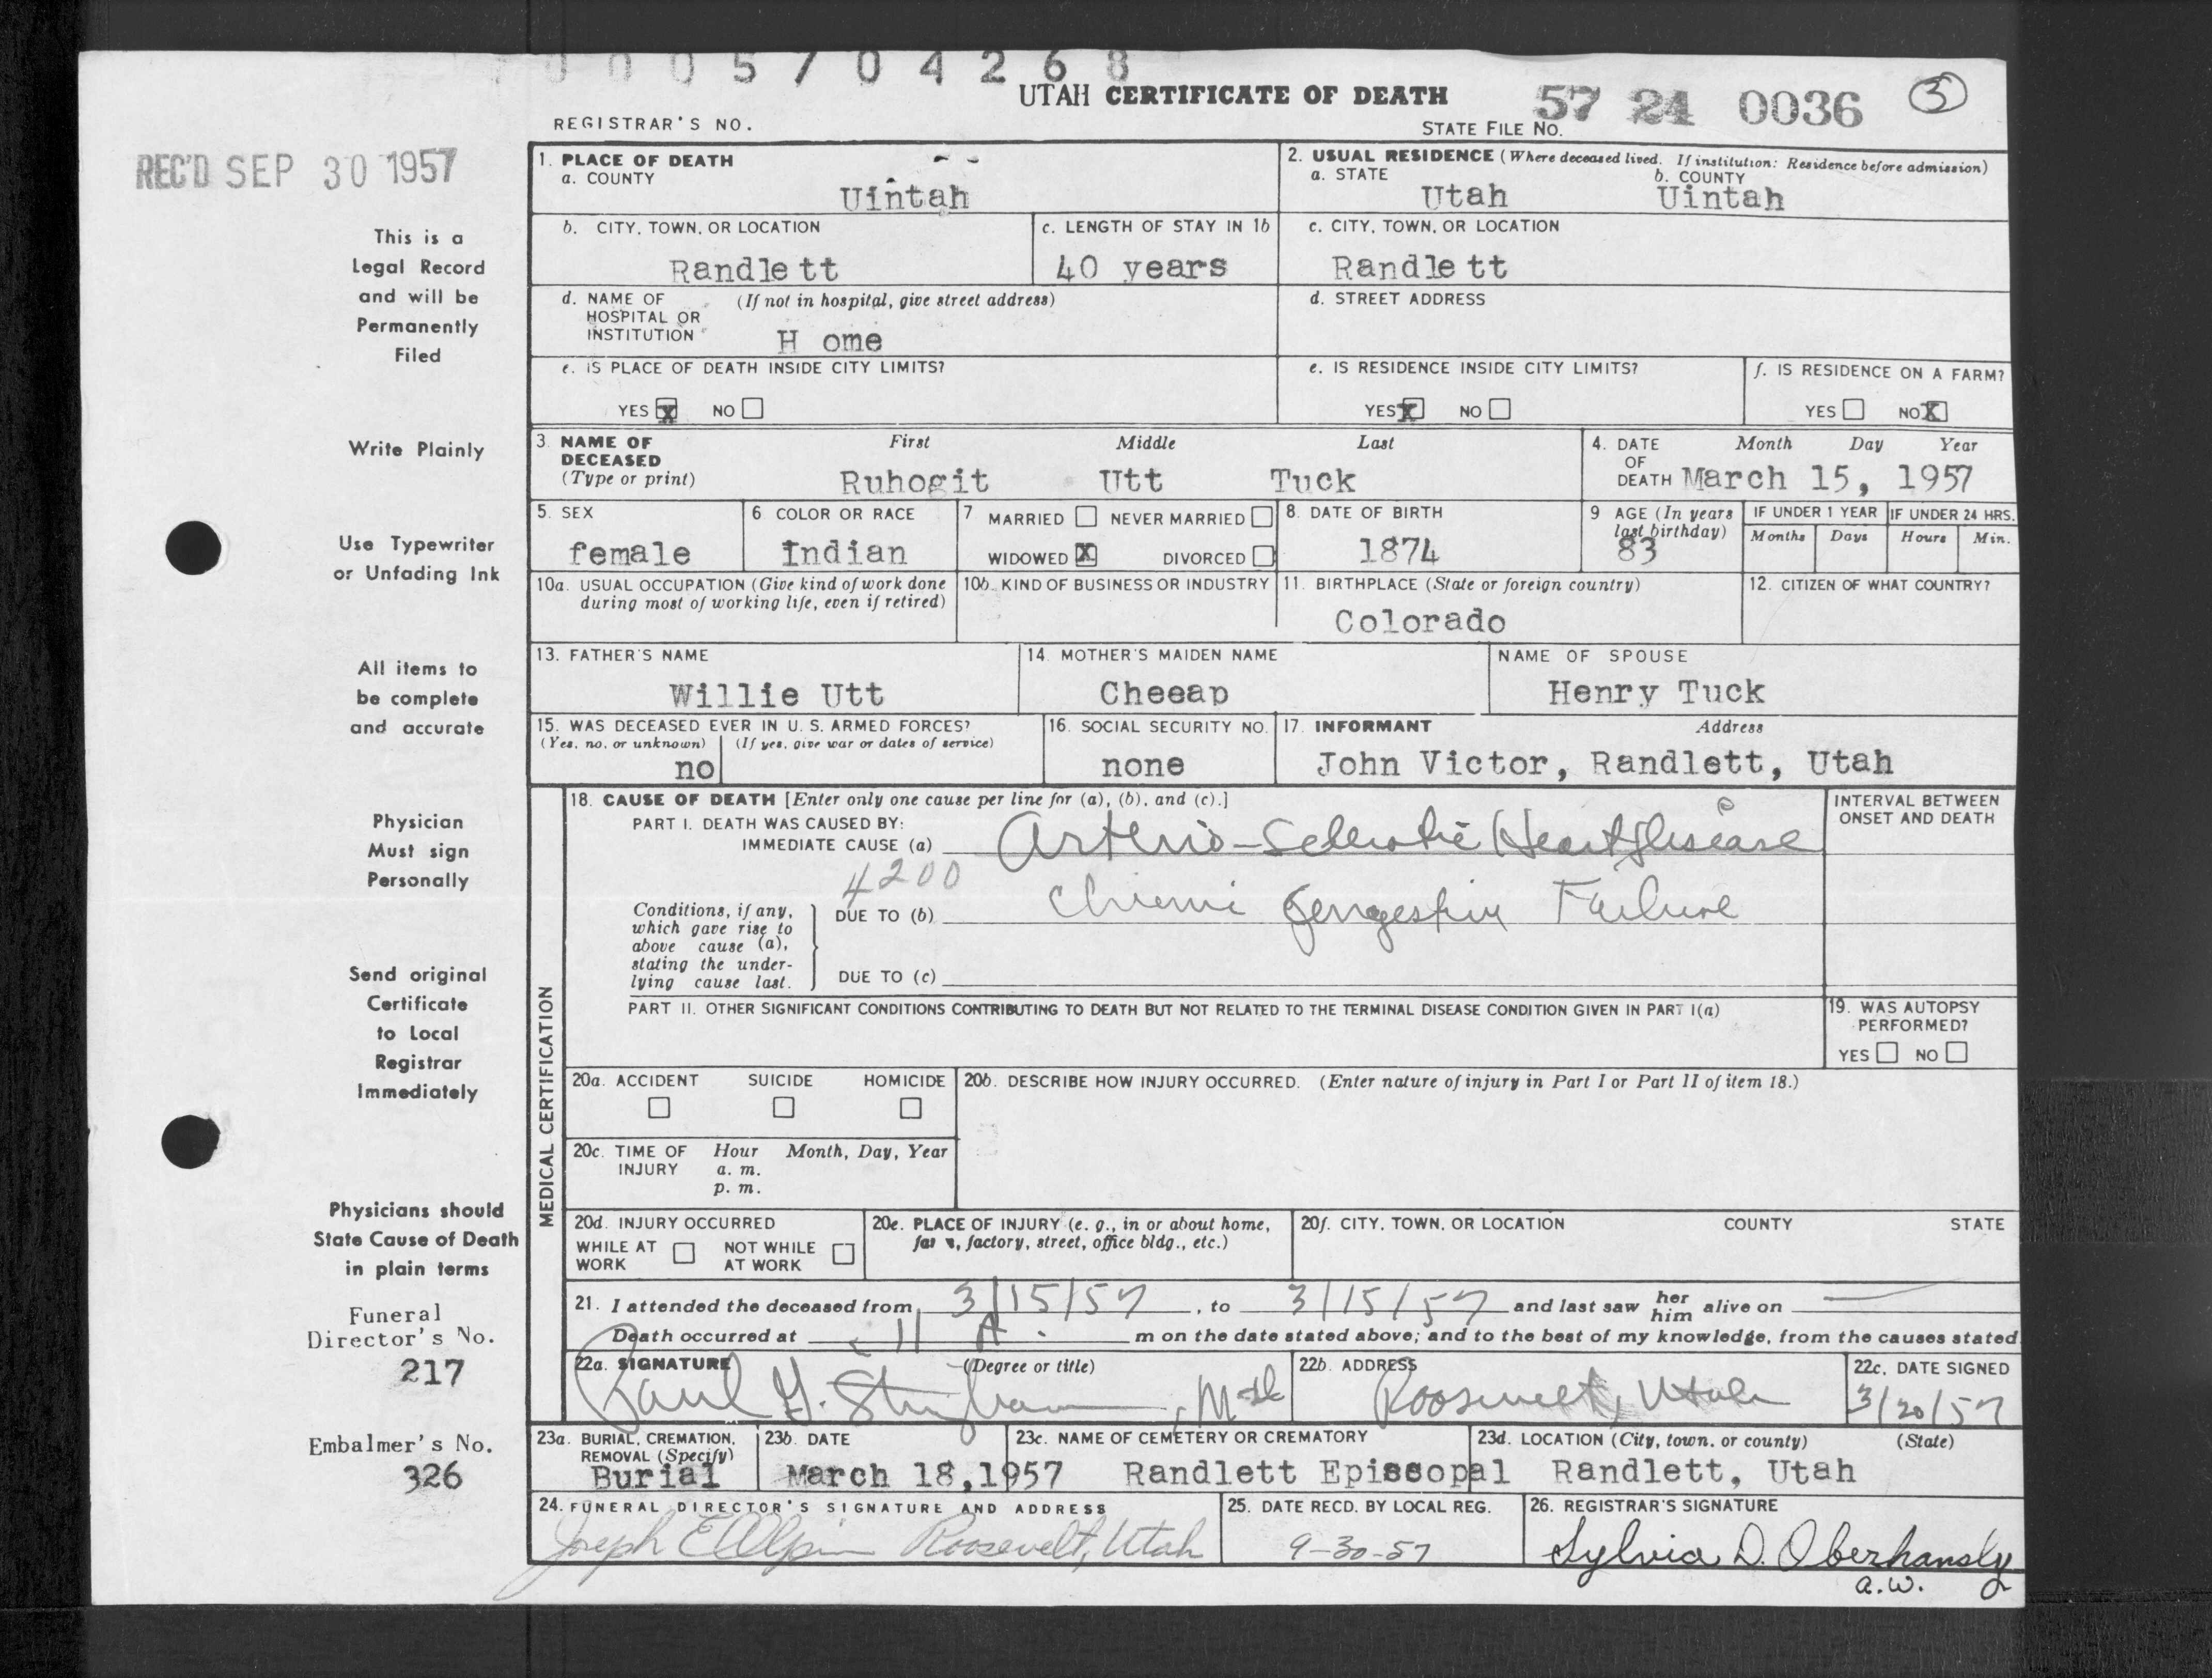 0005704268
UTAH CERTIFICATE OF DEATH
57 24 0036 3
REGISTRAR'S NO.
STATE FILE NO.
REC'D SEP 30 1957
This is a
Legal Record
and will be
Permanently
Filed
Write Plainly
Use Typewriter
or Unfading Ink
All items to
be complete
and accurate
Physician
Must sign
Personally
Send original
Certificate
to Local
Registrar
Immediately
Physicians should
State Cause of Death
in plain terms
Funeral
Director's No.
217
Embalmer's No.
326
1. PLACE OF DEATH
a. COUNTY
Uintah
2. USUAL RESIDENCE (Where deceased lived. If institution: Residence before admission)
a. STATE b. COUNTY
Utah Uintah
b. CITY, TOWN, OR LOCATION
Randlett
c. LENGTH OF STAY IN 1b
40 years
c. CITY, TOWN, OR LOCATION
Randlett
d. NAME OF (If not in hospital, give street address)
HOSPITAL OR
INSTITUTION H ome
d. STREET ADDRESS
e. IS PLACE OF DEATH INSIDE CITY LIMITS?
YES X NO
e. IS RESIDENCE INSIDE CITY LIMITS?
YES X NO
f. IS RESIDENCE ON A FARM?
YES NO X
3. NAME OF First Middle Last
DECEASED
(Type or print) Ruhogit Utt Tuck
4. DATE Month Day Year
OF
DEATH March 15, 1957
5. SEX
female
6 COLOR OR RACE
Indian
7 MARRIED NEVER MARRIED
WIDOWED X DIVORCED
8. DATE OF BIRTH
1874
9 AGE (In years
last birthday)
83
IF UNDER 1 YEAR
Months Days
IF UNDER 24 HRS.
Hours Min.
10a. USUAL OCCUPATION (Give kind of work done
during most of working life, even if retired)
10b. KIND OF BUSINESS OR INDUSTRY
11. BIRTHPLACE (State or foreign country)
Colorado
12. CITIZEN OF WHAT COUNTRY?
13. FATHER'S NAME
Willie Utt
14. MOTHER'S MAIDEN NAME
Cheeap
NAME OF SPOUSE
Henry Tuck
15. WAS DECEASED EVER IN U. S. ARMED FORCES?
(Yes, no, or unknown) (If yes, give war or dates of service)
no
16. SOCIAL SECURITY NO.
none
17. INFORMANT Address
John Victor, Randlett, Utah
MEDICAL CERTIFICATION
18. CAUSE OF DEATH [Enter only one cause per line for (a), (b), and (c).]
PART I. DEATH WAS CAUSED BY:
IMMEDIATE CAUSE (a) Arterio-Sclerotic Heart Disease
4200
Conditions, if any,
which gave rise to
above cause (a),
stating the under-
lying cause last.
DUE TO (b) Chronic Congestive Failure
DUE TO (c)
INTERVAL BETWEEN
ONSET AND DEATH
PART II. OTHER SIGNIFICANT CONDITIONS CONTRIBUTING TO DEATH BUT NOT RELATED TO THE TERMINAL DISEASE CONDITION GIVEN IN PART I(a)
19. WAS AUTOPSY
PERFORMED?
YES NO
20a. ACCIDENT SUICIDE HOMICIDE
20b. DESCRIBE HOW INJURY OCCURRED. (Enter nature of injury in Part I or Part II of item 18.)
20c. TIME OF Hour Month, Day, Year
INJURY a. m.
p. m.
20d. INJURY OCCURRED
WHILE AT NOT WHILE
WORK AT WORK
20e. PLACE OF INJURY (e. g., in or about home,
farm, factory, street, office bldg., etc.)
20f. CITY, TOWN, OR LOCATION COUNTY STATE
21. I attended the deceased from 3/15/57, to 3/15/57 and last saw her him alive on —
Death occurred at 11 A. m on the date stated above; and to the best of my knowledge, from the causes stated
22a. SIGNATURE (Degree or title)
Paul G. Stringham, M D
22b. ADDRESS
Roosevelt, Utah
22c. DATE SIGNED
3/20/57
23a. BURIAL, CREMATION,
REMOVAL (Specify)
Burial
23b. DATE
March 18,1957
23c. NAME OF CEMETERY OR CREMATORY
Randlett Episcopal
23d. LOCATION (City, town, or county) (State)
Randlett, Utah
24. FUNERAL DIRECTOR'S SIGNATURE AND ADDRESS
Joseph Roosevelt, Utah
25. DATE RECD. BY LOCAL REG.
9-30-57
26. REGISTRAR'S SIGNATURE
Sylvia D. Oberhansly
a.w.